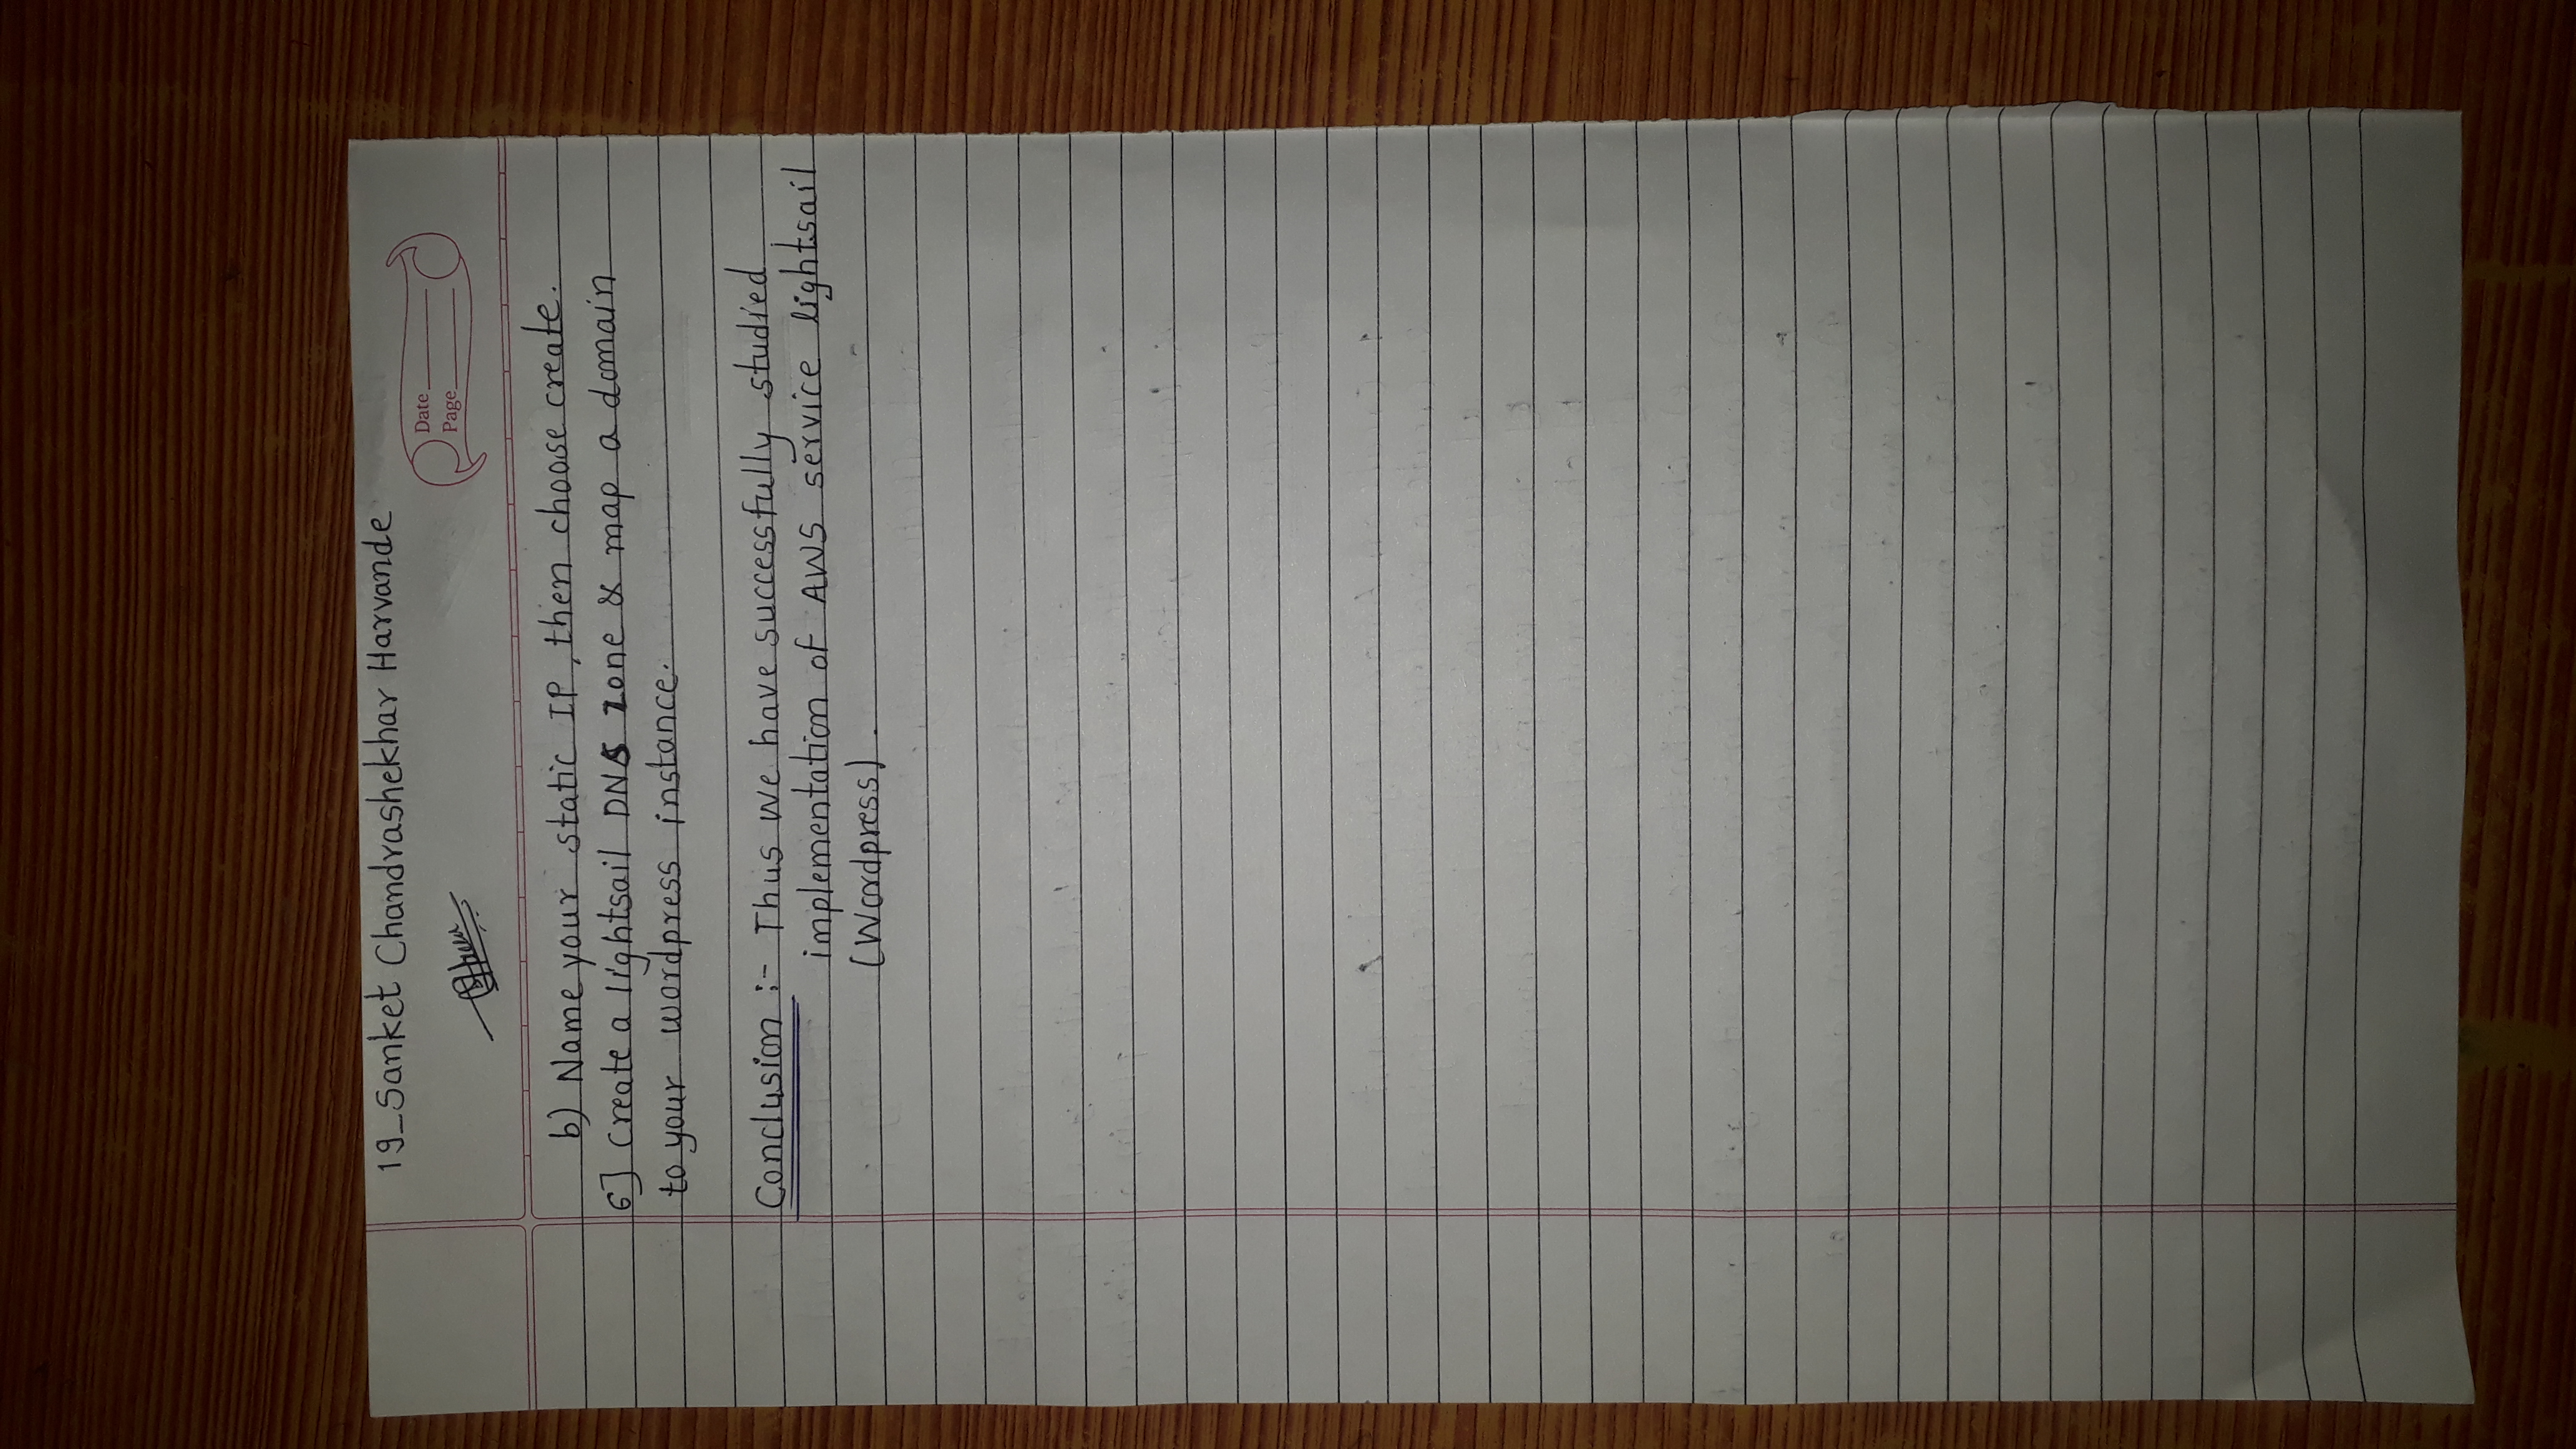 19_Sanket Chandrashekhar Harvande
Date
Page
b) Name your static IP, then choose create.
6] Create a lightsail DNS zone & map a domain
to your wordpress instance.
Conclusion :- Thus we have successfully studied
implementation of AWS service lightsail
(Wordpress).